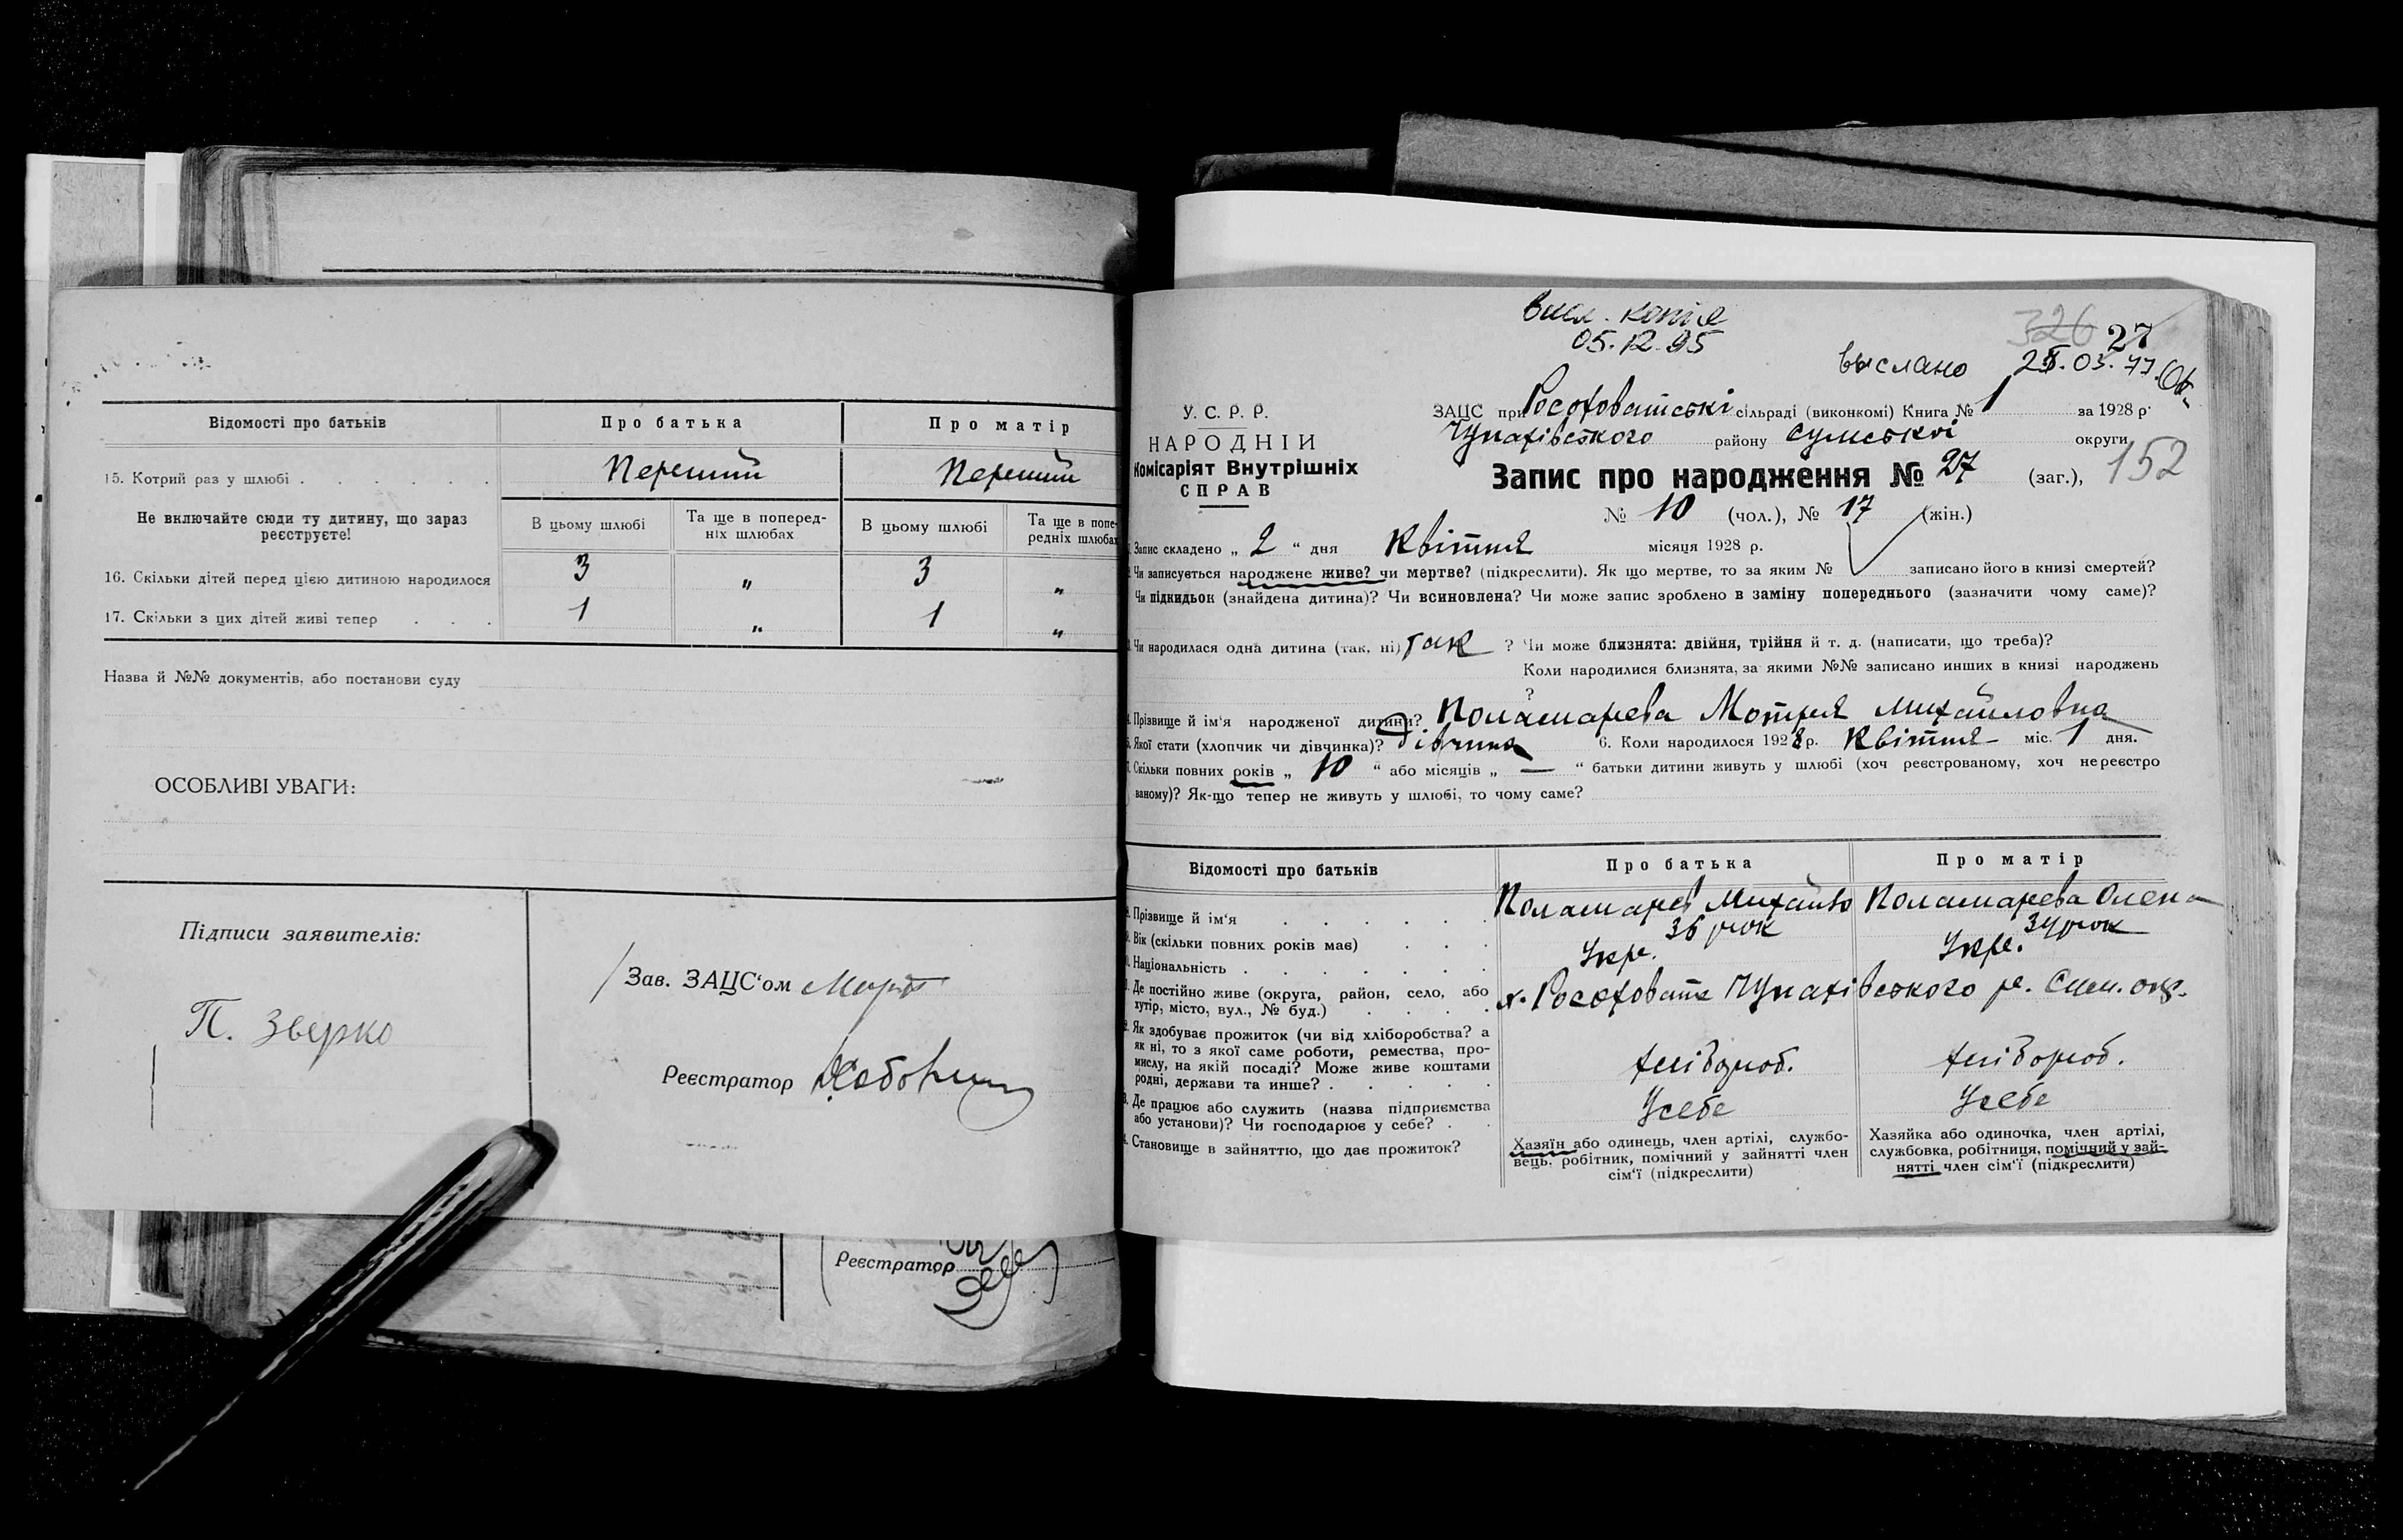 Відомості про батьків
Про батька
Про матір
15. Котрий раз у шлюбі
Перший
Перший
Не включайте сюди ту дитину, що зараз
реєструєте!
В цьому шлюбі
Та ще в поперед-
ніх шлюбах
В цьому шлюбі
Та ще в попе-
редніх шлюбах
16. Скільки дітей перед цією дитиною народилося
3
"
3
"
17. Скільки з цих дітей живі тепер
1
"
1
"
Назва й №№ документів, або постанови суду
ОСОБЛИВІ УВАГИ:
Підписи заявителів:
П. Зверко
Зав. ЗАЦС'ом
Реєстратор
Реєстратор
висл. копія
05.12.95
326 27
выслано 28.03.77.
У. С. Р. Р.
НАРОДНІЙ
Комісаріят Внутрішніх
СПРАВ
ЗАЦС при Росоховатські сільраді (виконкомі) Книга № 1 за 1928 р.
Чупахівського району Сумської округи
152
Запис про народження № 27 (заг.),
№ 10 (чол.), № 17 (жін.)
Запис складено „ 2 “ дня Квітня місяця 1928 р.
Чи записується народжене живе? чи мертве? (підкреслити). Як що мертве, то за яким № записано його в книзі смертей?
Чи підкидьок (знайдена дитина)? Чи всиновлена? Чи може запис зроблено в заміну попереднього (зазначити чому саме)?
Чи народилася одна дитина (так, ні) так ? Чи може близнята: двійня, трійня й т. д. (написати, що треба)?
Коли народилися близнята, за якими №№ записано инших в книзі народжень
?
Прізвище й ім'я народженої дитини? Поламарева Мотря Михайловна
Якої стати (хлопчик чи дівчинка)? Дівчина 6. Коли народилося 1928 р. Квітня міс. 1 дня.
Скільки повних років „ 10 “ або місяців „ — “ батьки дитини живуть у шлюбі (хоч реєстрованому, хоч нереєстро
ваному)? Як-що тепер не живуть у шлюбі, то чому саме?
Відомості про батьків
Про батька
Про матір
Прізвище й ім'я
Поламарев Михайло
Поламарева Олена
Вік (скільки повних років має)
36 рок
34 рок
Національність
Укр.
Укр.
Де постійно живе (округа, район, село, або
хутір, місто, вул., № буд.)
х. Росоховата Чупахівського р. Сум. окр.
Як здобуває прожиток (чи від хліборобства? а
як ні, то з якої саме роботи, ремества, про-
мислу, на якій посаді? Може живе коштами
родні, держави та инше?
хлібороб.
хлібороб.
Де працює або служить (назва підприємства
або установи)? Чи господарює у себе?
Усебе
Усебе
Становище в зайняттю, що дає прожиток?
Хазяїн або одинець, член артілі, службо-
вець, робітник, помічний у зайнятті член
сім'ї (підкреслити)
Хазяйка або одиночка, член артілі,
службовка, робітниця, помічний у зай-
нятті член сім'ї (підкреслити)